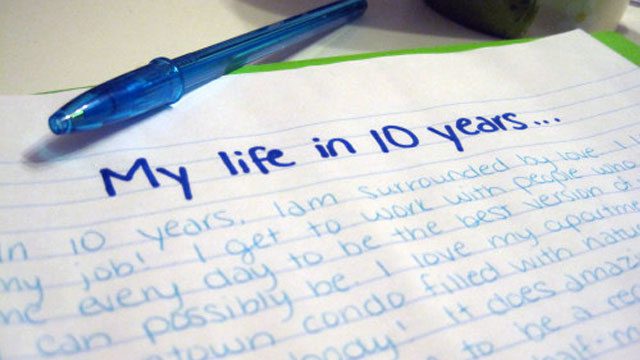 My life in 10 years...
In 10 years, I am surrounded by love. I
my job! I get to work with people who
me every day to be the best version of
can possibly be. I love my apartme
town condo filled with natu
It does amaz
to be a re